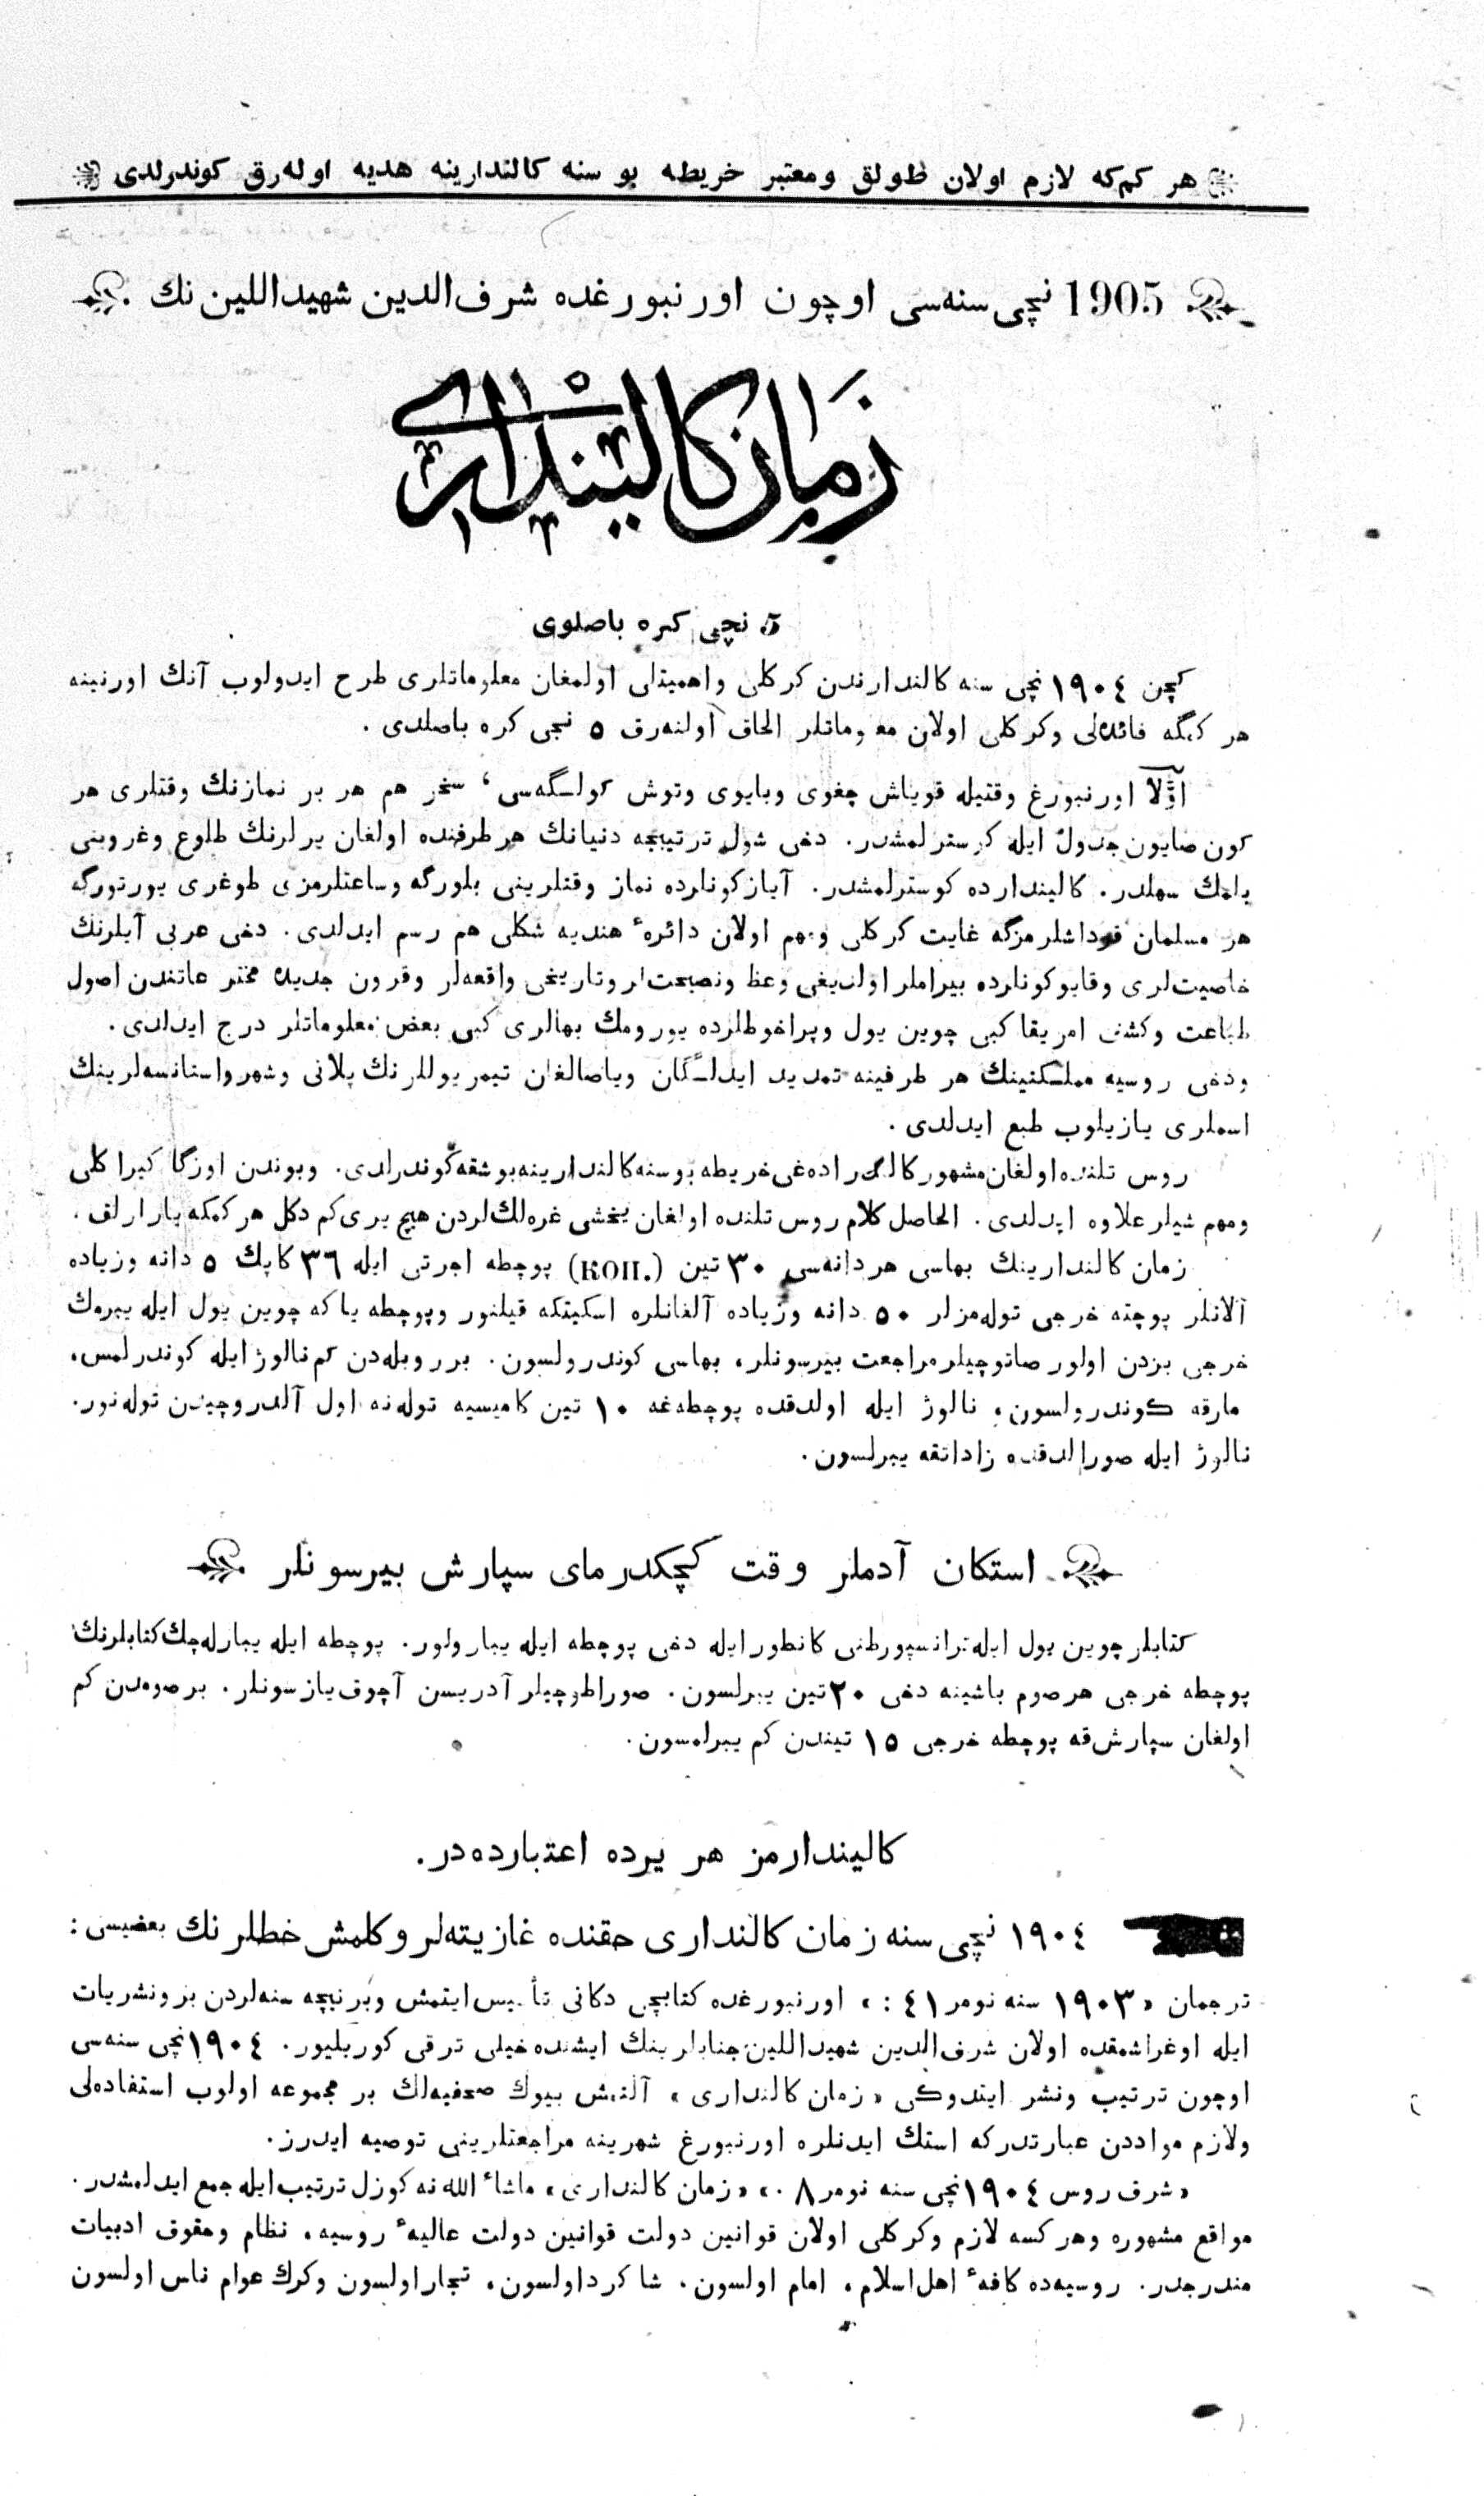 هر كم‌كه لازم اولان طولق ومعتبر خريطه بو سنه كالندارينه هديه اوله‌رق كوندرلدى
1905 نچى سنه‌سى اوچون اورنبورغده شرف‌الدين شهيداللين‌نك
زمان كاليندارى
5 نچى كره باصلوى
كچن ١٩٠٤ نچى سنه كالندارندن كركلى واهميتلى اولمغان معلوماتلرى طرح ايدولوب آنك اورنينه
هر كمگه فائده‌لى وكركلى اولان معلوماتلر الحاق اولنه‌رق ٥ نچى كره باصلدى .
اوّلا اورنبورغ وقتيله قوياش چغوى وبايوى وتوش كولـگه‌سى، سحر هم هر بر نمازنك وقتلرى هر
كون صايون جدول ايله كوسترلمشدر. دخى شول ترتيبچه دنيانك هر طرفنده اولغان يرلرنك طلوع وغروبنى
بلمك سهلدر. كاليندارده كوسترلمشدر. آيازكونلرده نماز وقتلرينى بلورگه وساعتلرمزى طوغرى يورتورگه
هر مسلمان قرداشلرمزگه غايت كركلى ومهم اولان دائرهٔ هنديه شكلى هم رسم ايدلدى. دخى عربى آيلرنك
خاصيت‌لرى وقايوكونلرده بيراملر اولديغى وعظ ونصيحت‌لر وتاريخى واقعه‌لر وقرون جديده مخترعاتندن اصول
طباعت وكشف امريقا كبى چوين يول وپراخوطلرده يورومك بهالرى كبى بعض معلوماتلر درج ايدلدى.
ودخى روسيه مملـكتينك هر طرفينه تمديد ايدلـگان وياصالغان تيمر يوللرنك پلانى وشهر واستانسه‌لرينك
اسملرى يازيلوب طبع ايدلدى.
روس تلنده اولغان مشهور كالنداراده‌غى خريطه بو سنه كالندارينه بوشقه كوندرلدى. وبوندن اوزگا كيراكلى
ومهم شيلر علاوه ايدلدى. الحاصل كلام روس تلنده اولغان يخشى غره‌لك‌لردن هيچ برى كم دكل هر كمكه يارارلق.
زمان كالندارينك بهاسى هر دانه‌سى ٣٠ تين (коп.) پوچطه اجرتى ايله ٣٦ كاپك ٥ دانه وزياده
آلانلر پوچته خرجى توله‌مزلر ٥٠ دانه وزياده آلغانلره اسكيتكه قيلنور وپوچطه ياكه چوين يول ايله يبرمك
خرجى بزدن اولور صاتوچيلر مراجعت بيرسونلر، بهاسى كوندرولسون. بر روبله‌دن كم نالوژ ايله كوندرلمس،
مارقه كوندرولسون، نالوژ ايله اولدقده پوچطه‌غه ١٠ تين كاميسيه توله‌نه اول آلدروچيدن توله‌نور.
نالوژ ايله صورالدقده زاداتقه يبرلسون.
استكان آدملر وقت كچكدرماى سپارش بيرسونلر
كتابلر چوين يول ايله ترانسپورطنى كانطور ايله دخى پوچطه ايله يبارولور. پوچطه ايله يبارله‌چك كتابلرنك
پوچطه خرجى هر صوم باشينه دخى ٢٠ تين يبرلسون. صوراطوچيلر آدريسن آچوق يازسونلر. بر صومدن كم
اولغان سپارش‌قه پوچطه خرجى ١٥ تيندن كم يبرلمسون.
كاليندارمز هر يرده اعتبارده‌در.
١٩٠٤ نچى سنه زمان كالندارى حقنده غازيته‌لر وكلمش خطلرنك بعضيسى:
ترجمان «١٩٠٣ سنه نومر ٤١:» اورنبورغده كتابچى دكانى تأسيس ايتمش وبر نيچه سنه‌لردن بر ونشريات
ايله اوغراشمقده اولان شرف‌الدين شهيداللين جنابلرينك ايشنده خيلى ترقى كوريليور. ١٩٠٤ نچى سنه‌سى
اوچون ترتيب ونشر ايتدوكى «زمان كالندارى» آلتمش بيوك صحفيه‌لك بر مجموعه اولوب استفاده‌لى
ولازم مواددن عبارتدركه استك ايدنلره اورنبورغ شهرينه مراجعتلرينى توصيه ايدرز.
«شرق روس ١٩٠٤ نچى سنه نومر ٨٠» «زمان كالندارى» ماشاء الله نه كوزل ترتيب ايله جمع ايدلمشدر.
مواقع مشهوره وهركسه لازم وكركلى اولان قوانين دولت قوانين دولت عاليهٔ روسيه، نظام وحقوق ادبيات
مندرجدر. روسيه‌ده كافهٔ اهل اسلام، امام اولسون، شاكرد اولسون، تجار اولسون وكرك عوام ناس اولسون